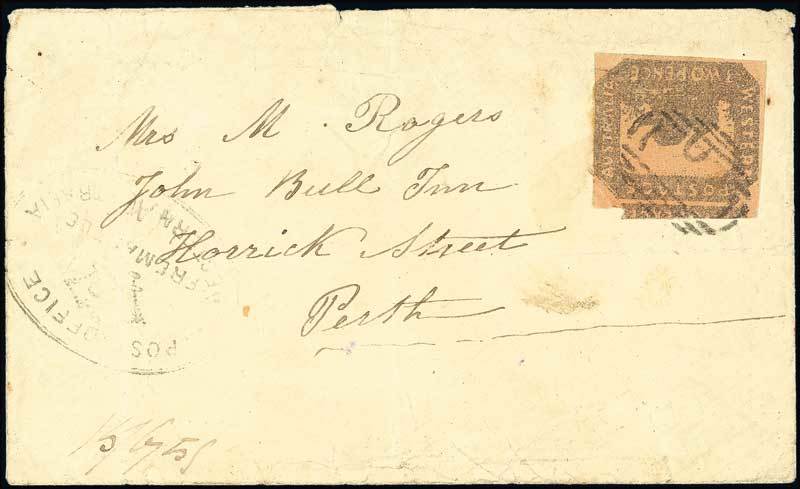 Mrs M. Rogers
John Bull Inn
Horrick Street
Perth
TWO PENCE
WESTERN
AUSTRALIA
POSTAGE
POST OFFICE
FREMANTLE
WESTERN AUSTRALIA